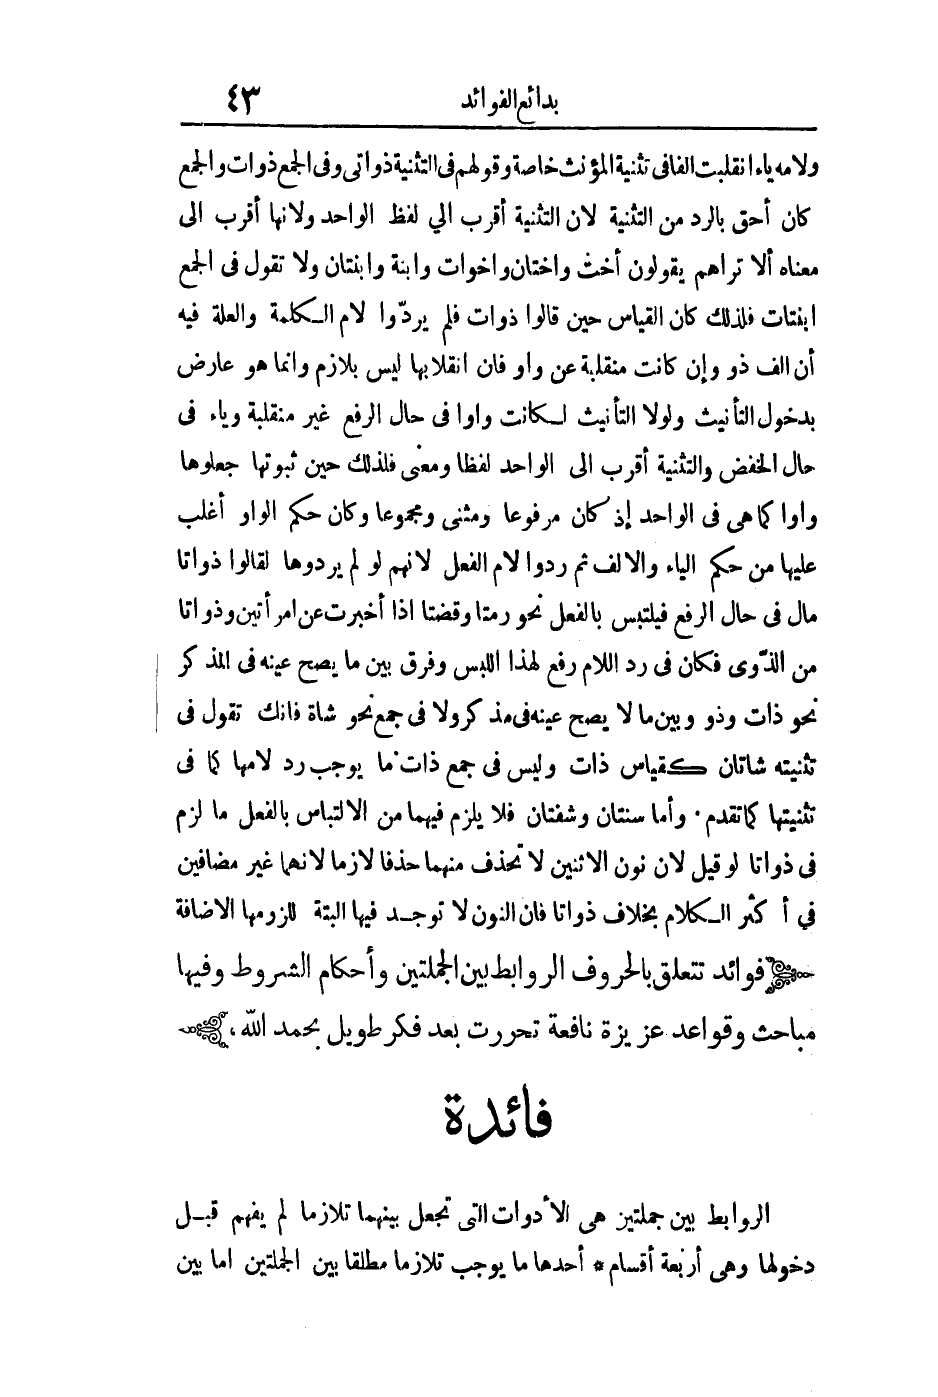 بدائع الفوائد ٤٣
ولامه ياء انقلبت الفا فى تثنية المؤنث خاصة وقولهم فى التثنية ذواتى وفى الجمع ذوات والجمع
كان أحق بالرد من التثنية لان التثنية أقرب الي لفظ الواحد ولانها أقرب الى
معناه ألا تراهم يقولون أخت واختان واخوات وابنة وابنتان ولا تقول فى الجمع
ابنتات فلذلك كان القياس حين قالوا ذوات فلم يردّوا لام الكلمة والعلة فيه
أن الف ذو وإن كانت منقلبة عن واو فان انقلابها ليس بلازم وانما هو عارض
بدخول التأنيث ولولا التأنيث لكانت واوا فى حال الرفع غير منقلبة وياء فى
حال الخفض والتثنية أقرب الى الواحد لفظا ومعنى فلذلك حين ثبوتها جعلوها
واوا كما هى فى الواحد إذ كان مرفوعا ومثنى ومجموعا وكان حكم الواو أغلب
عليها من حكم الياء والالف ثم ردوا لام الفعل لانهم لو لم يردوها لقالوا ذواتا
مال فى حال الرفع فيلتبس بالفعل نحو رمتا وقضتا اذا أخبرت عن امرأتين وذواتا
من الذّوى فكان فى رد اللام رفع لهذا اللبس وفرق بين ما يصح عينه فى المذكر
نحو ذات وذو وبين ما لا يصح عينه فى مذكر ولا فى جمع نحو شاة فانك تقول فى
تثنيته شاتان كقياس ذات وليس فى جمع ذات ما يوجب رد لامها كما فى
تثنيتها كما تقدم · وأما سنتان وشفتان فلا يلزم فيهما من الالتباس بالفعل ما لزم
فى ذواتا لو قيل لان نون الاثنين لا تحذف منهما حذفا لازما لانهما غير مضافين
في أكثر الكلام بخلاف ذواتا فان النون لا توجد فيها البتة للزومها الاضافة
فوائد تتعلق بالحروف الروابط بين الجملتين وأحكام الشروط وفيها
مباحث وقواعد عزيزة نافعة تحررت بعد فكر طويل بحمد الله،
فائدة
الروابط بين جملتين هى الأدوات التى تجعل بينهما تلازما لم يفهم قبل
دخولها وهى أربعة أقسام * أحدها ما يوجب تلازما مطلقا بين الجملتين اما بين